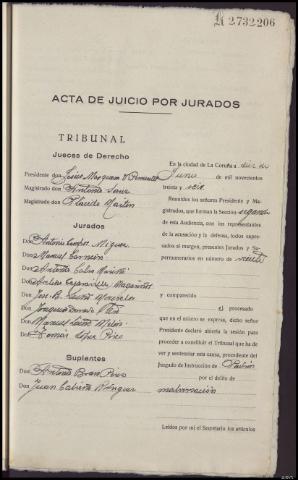 2732206
ACTA DE JUICIO POR JURADOS
TRIBUNAL
Jueces de Derecho
Presidente don José
Magistrado don Antonio Sanz
Magistrado don Plácido Martín
Jurados
Don Antonio
Don Manuel Carneiro
Don Antonio
Don
Don José
Don Joaquín
Don Manuel
Don Tomás López Pose
Suplentes
Don Antonio
Don Juan
En la ciudad de La Coruña a diez de
Junio de mil novecientos
treinta y seis
Reunidos los señores Presidente y Ma-
gistrados, que forman la Sección segunda
de esta Audiencia, con los representantes
de la acusación y la defensa, todos expre-
sados al margen, presentes Jurados y Su-
pernumerarios en número de veinte
y comparecido el procesado
que en el mismo se expresa, dicho señor
Presidente declaró abierta la sesión para
proceder a constituir el Tribunal que ha de
ver y sentenciar esta causa, procedente del
Juzgado de Instrucción de Padrón
por el delito de
malversación
Leídos por mí el Secretario los artículos